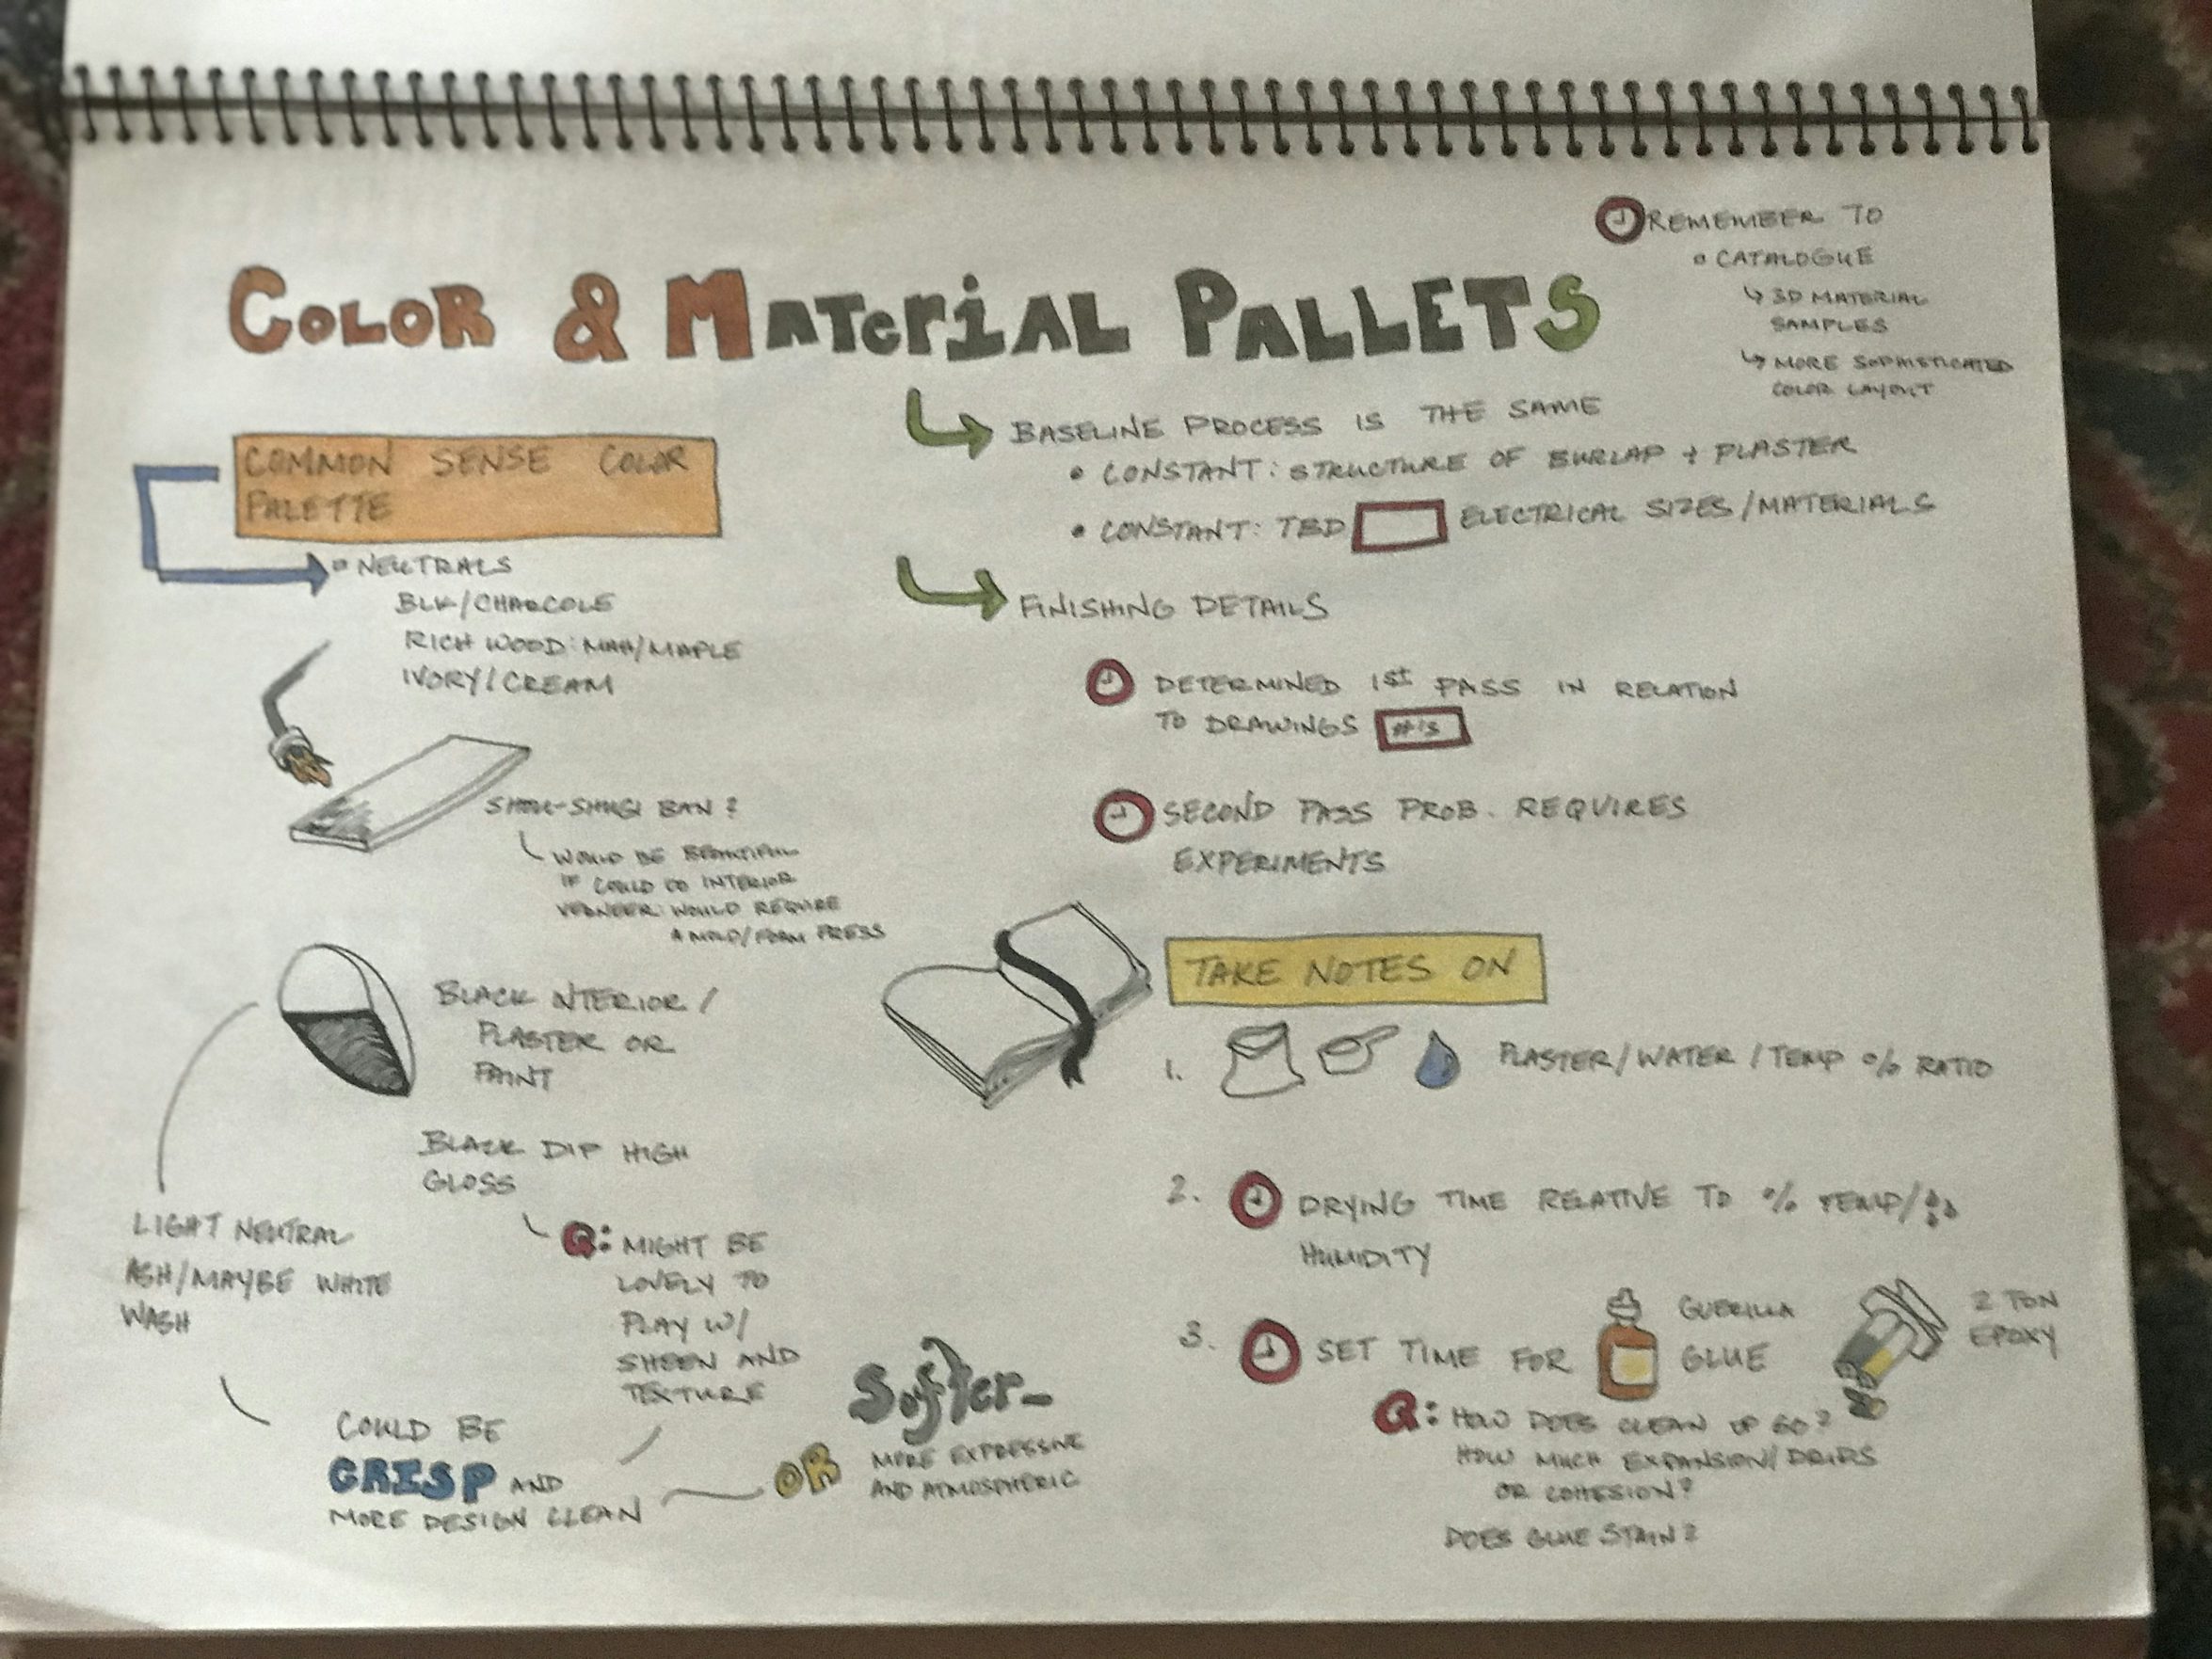 REMEMBER TO
CATALOGUE
3D MATERIAL
SAMPLES
MORE SOPHISTICATED
COLOR LAYOUT
COLOR & MATERIAL PALLETS
COMMON SENSE COLOR
PALETTE
NEUTRALS
BLK/CHARCOLE
RICH WOOD: MAH/MAPLE
IVORY/CREAM
SHOU-SHUGI BAN?
WOULD BE BEAUTIFUL
IF COULD DO INTERIOR
VENEER: WOULD REQUIRE
A MOLD/FOAM PRESS
BLACK INTERIOR/
PLASTER OR
PAINT
BLACK DIP HIGH
GLOSS
Q: MIGHT BE
LOVELY TO
PLAY W/
SHEEN AND
TEXTURE
LIGHT NEUTRAL
ASH/MAYBE WHITE
WASH
COULD BE
CRISP AND
MORE DESIGN CLEAN
OR
Softer-
MORE EXPRESSIVE
AND ATMOSPHERIC
BASELINE PROCESS IS THE SAME
• CONSTANT: STRUCTURE OF BURLAP + PLASTER
• CONSTANT: TBD ELECTRICAL SIZES/MATERIALS
FINISHING DETAILS
DETERMINED 1st PASS IN RELATION
TO DRAWINGS #'S
SECOND PASS PROB. REQUIRES
EXPERIMENTS
TAKE NOTES ON
1. PLASTER/WATER/TEMP % RATIO
2. DRYING TIME RELATIVE TO % TEMP/
HUMIDITY
3. SET TIME FOR GUERILLA
GLUE
2 TON
EPOXY
Q: HOW DOES CLEAN UP GO?
HOW MUCH EXPANSION/DRIPS
OR COHESION?
DOES GLUE STAIN?